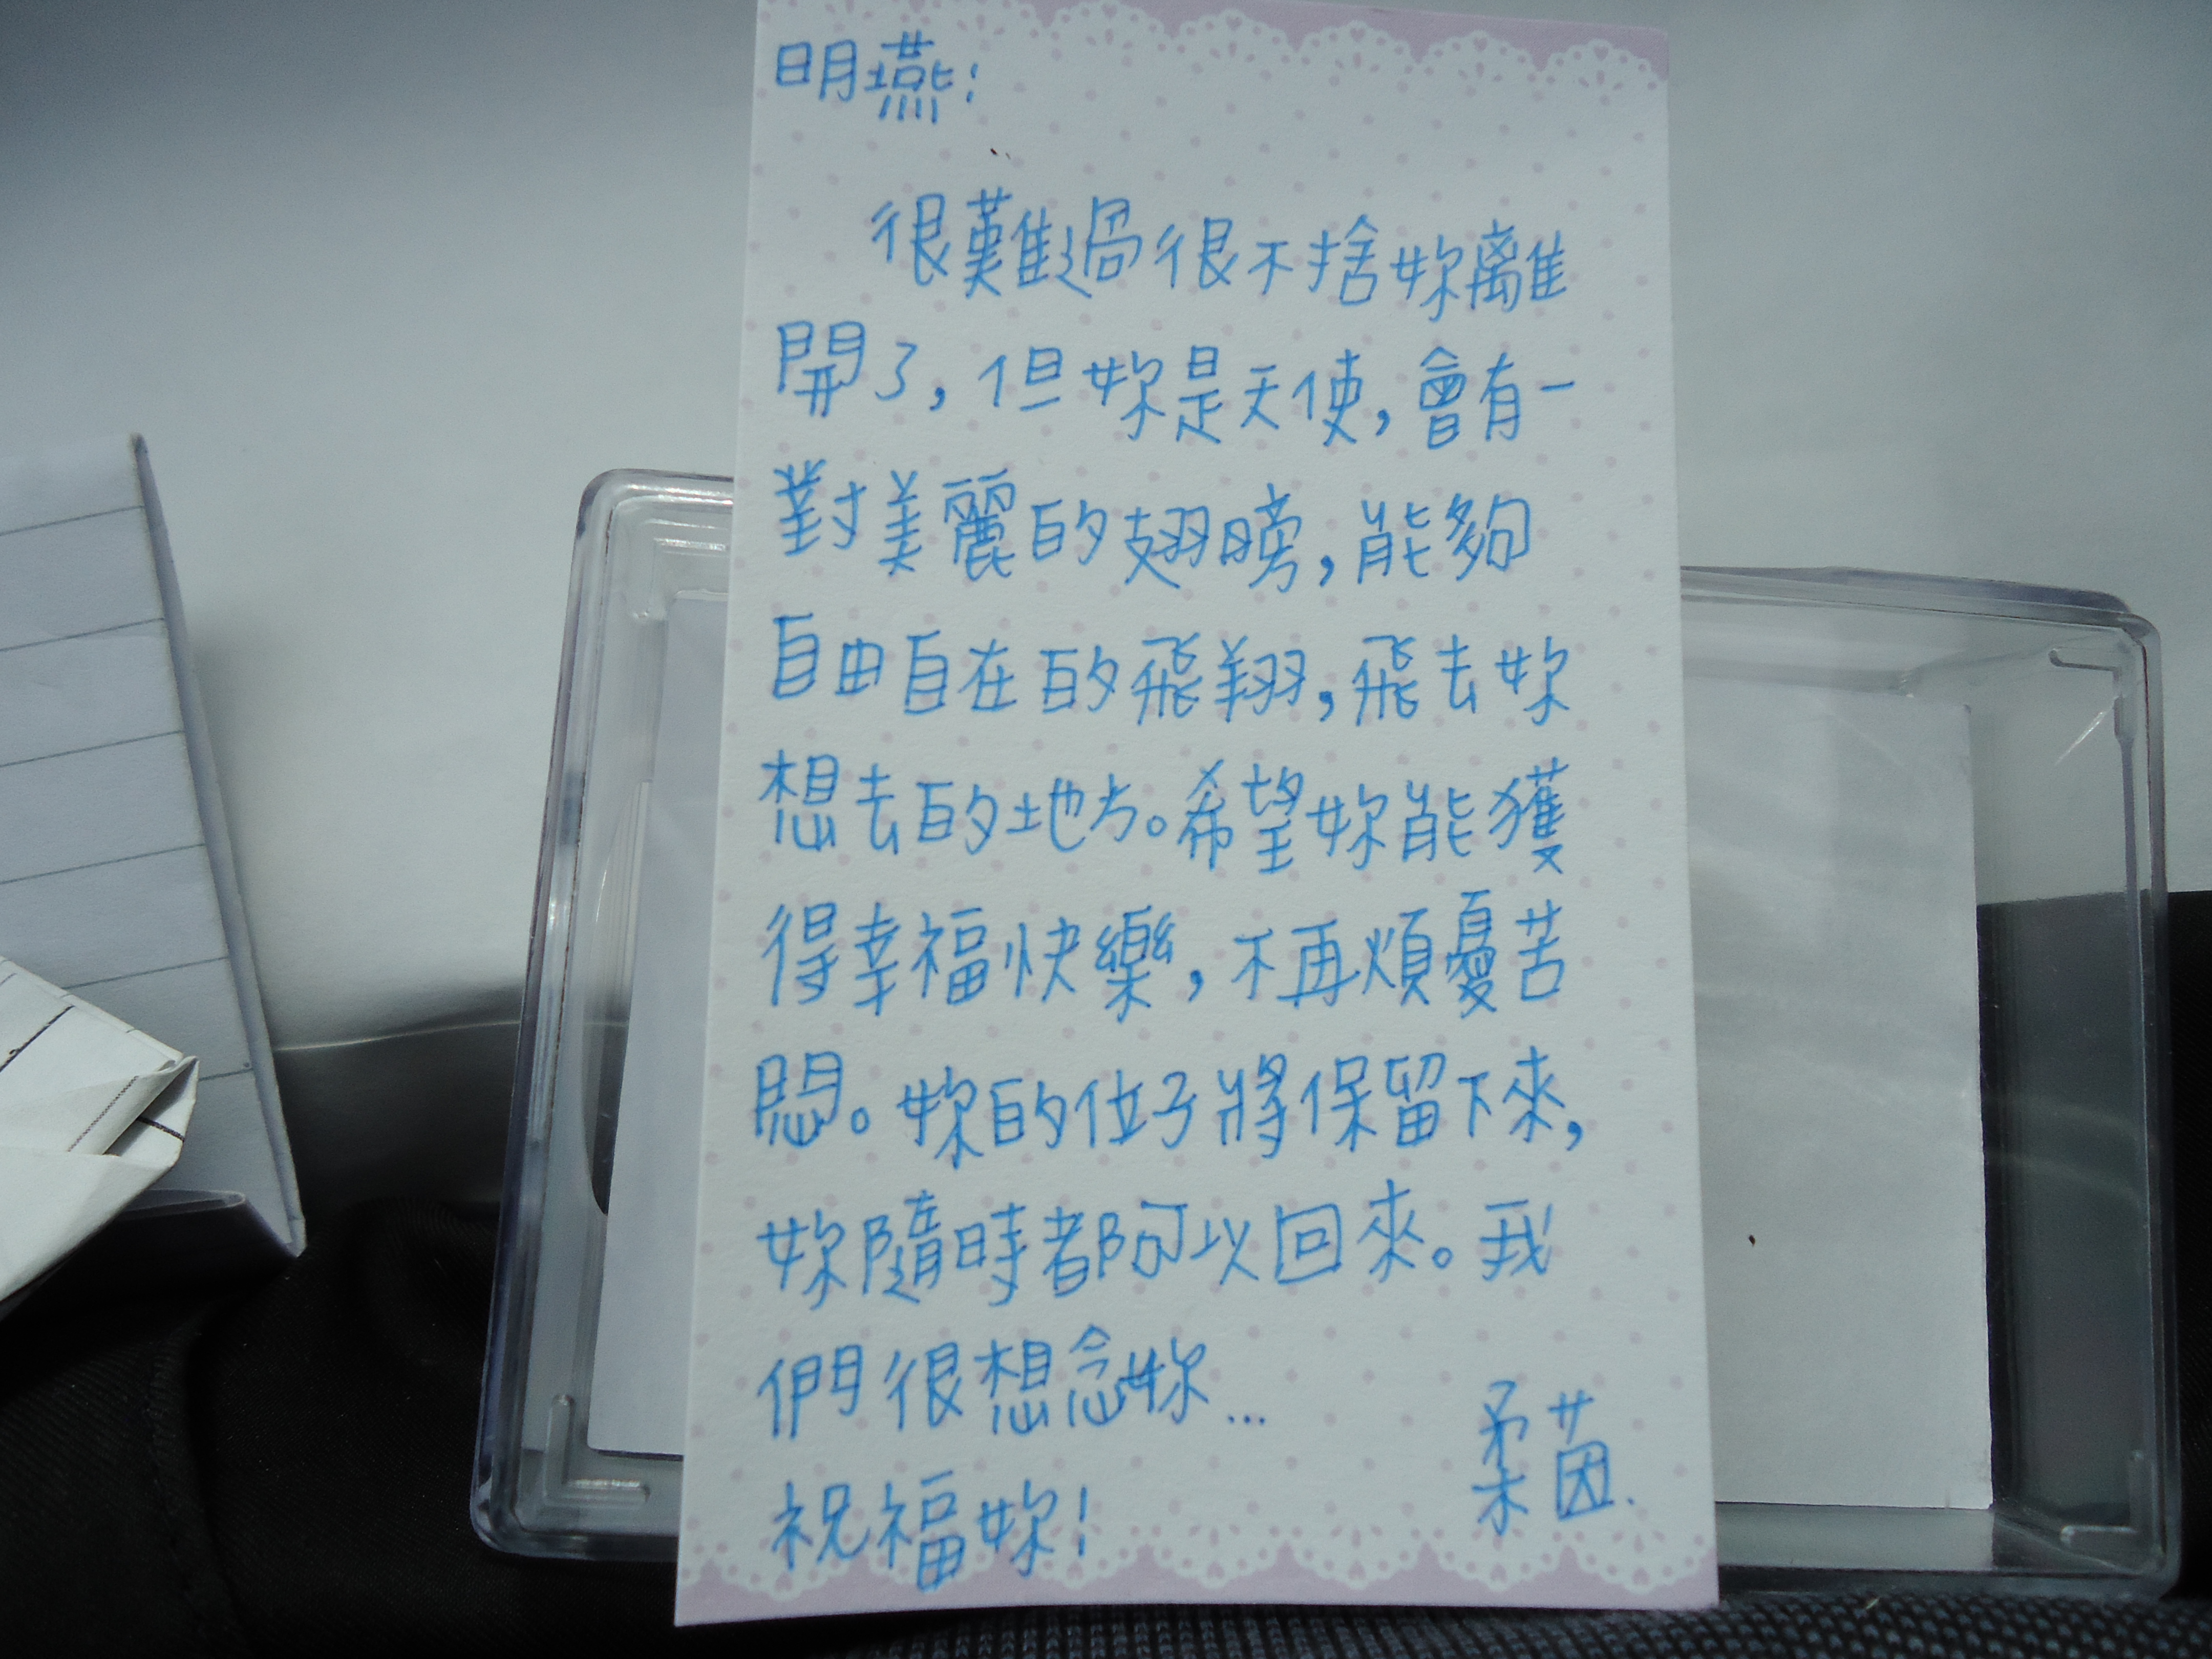 明燕：
很難過很不捨妳離
開了，但妳是天使，會有一
對美麗的翅膀，能夠
自由自在的飛翔，飛去妳
想去的地方。希望妳能獲
得幸福快樂，不再煩憂苦
悶。妳的位子將保留下來，
妳隨時都可以回來。我
們很想念妳…
柔茵.
祝福妳！